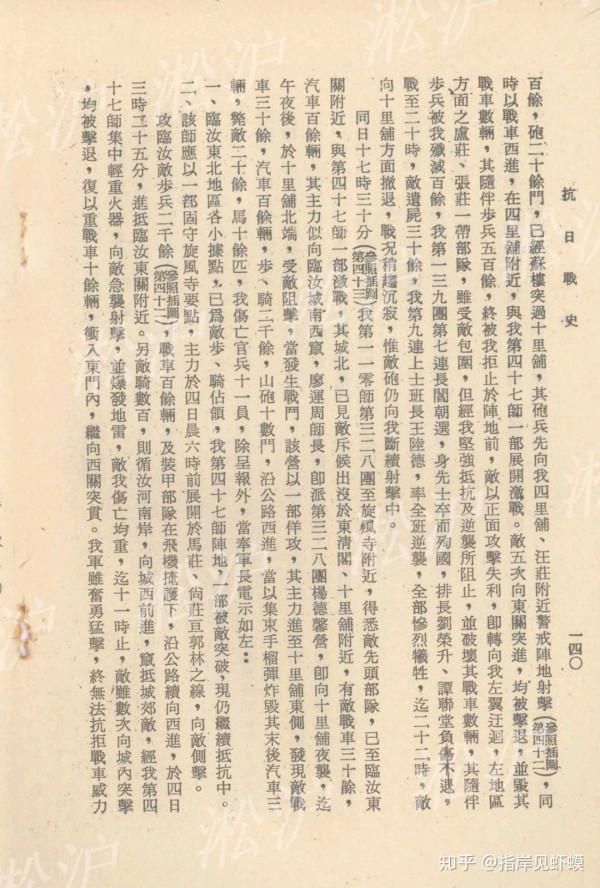 抗日戰史
一四〇
百餘，砲二十餘門，已經蘇樓突過十里舖，其砲兵先向我四里舖、汪莊附近警戒陣地射擊（參照插圖第四十二），同
時以戰車西進，在四里舖附近，與我第四十七師一部展開激戰。敵五次向東關突進，均被擊退，並毀其
戰車數輛，其隨伴步兵五百餘，終被我拒止於陣地前，敵以正面攻擊失利，卽轉向我左翼迂迴，左地區
方面之盧莊、張莊一帶部隊，雖受敵包圍，但經我堅強抵抗及逆襲所阻止，並破壞其戰車數輛，其隨伴
步兵被我殲滅百餘，我第一三九團第七連長閻朝選，身先士卒而殉國，排長劉榮升、譚聯堂負傷不退，
戰至二十時，敵遺屍三十餘，我第九連上士班長王陸德，率全班逆襲，全部慘烈犧牲，迄二十二時，敵
向十里舖方面撤退，戰況稍趨沉寂，惟敵砲仍向我斷續射擊中。
同日十七時三十分（參照插圖第四十三）我第一一零師第三二八團至旋風寺附近，得悉敵先頭部隊，已至臨汝東
關附近，與第四十七師一部激戰，其城北，已見敵斥候出沒於東淸閣、十里舖附近，有敵戰車三十餘，
汽車百餘輛，其主力似向臨汝城南西竄，廖運周師長，卽派第三二八團楊德馨營，卽向十里舖夜襲，迄
午夜後，於十里舖北端，受敵阻擊，當發生戰鬥，該營以一部佯攻，其主力進至十里舖東側，發現敵戰
車三十餘，汽車百餘輛，步、騎二千餘，山砲十數門，沿公路西進，當以集束手榴彈炸毀其末後汽車三
輛，斃敵二十餘，馬十餘匹，我傷亡官兵十一員，除呈報外，當奉軍長電示如左：
一、臨汝東北地區各小據點，已爲敵步、騎佔領，我第四十七師陣地，一部被敵突破，現仍繼續抵抗中。
二、該師應以一部固守旋風寺要點，主力於四日晨六時前展開於馬莊、尙莊亘郭林之線，向敵側擊。
攻臨汝敵步兵二千餘（參照插圖第四十二），戰車百餘輛，及裝甲部隊在飛機掩護下，沿公路續向西進，於四日
三時二十五分，進抵臨汝東關附近。另敵騎數百，則循汝河南岸，向城西前進，竄抵城郊敵，經我第四
十七師集中輕重火器，向敵急襲射擊，並爆發地雷，敵我傷亡均重，迄十一時止，敵雖數次向城內突擊
，均被擊退，復以重戰車十餘輛，衝入東門內，繼向西關突貫。我軍雖奮勇猛擊，終無法抗拒戰車威力
淞沪
知乎 @指岸见虾蟆